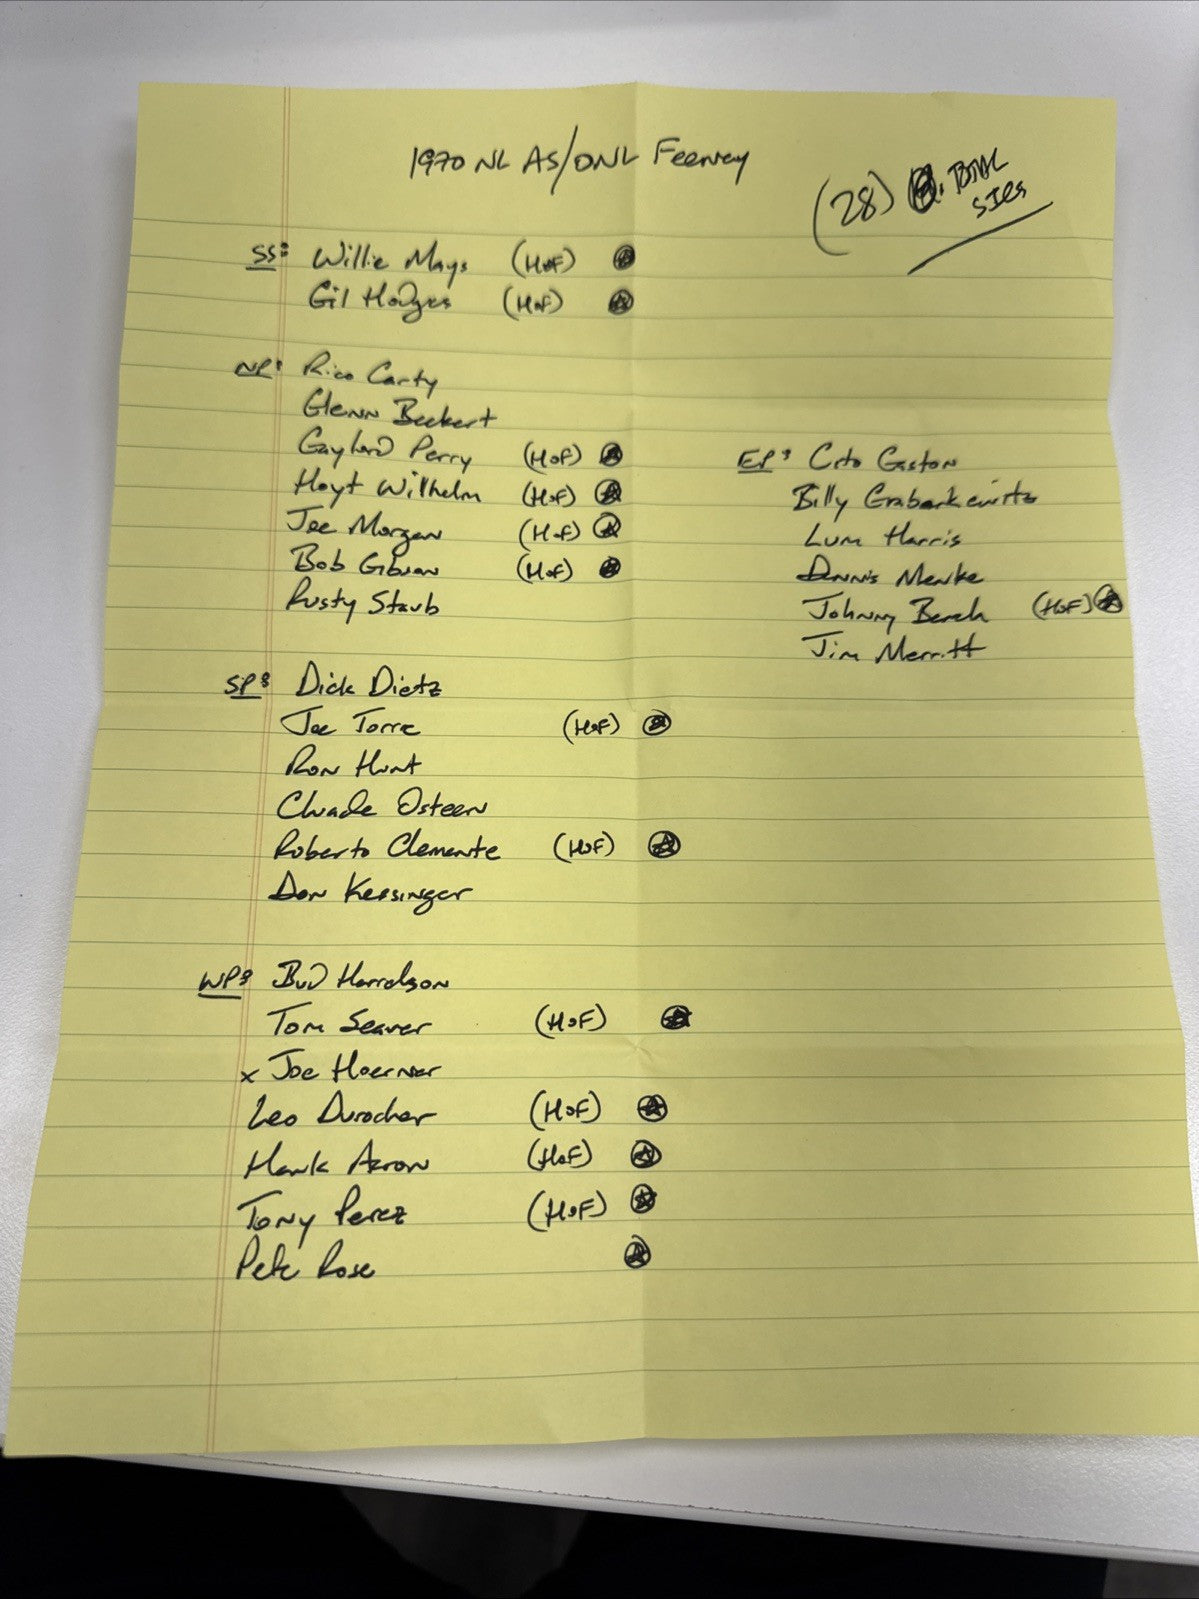 1970 NL AS/ONL Feeney
(28) Total
SIGS
SS: Willie Mays (HoF)
Gil Hodges (HoF)
NP: Rico Carty
Glenn Beckert
Gaylord Perry (HoF)
Hoyt Wilhelm (HoF)
Joe Morgan (HoF)
Bob Gibson (HoF)
Rusty Staub
SP: Dick Dietz
Joe Torre (HoF)
Ron Hunt
Cluade Osteen
Roberto Clemente (HoF)
Don Kessinger
WP: Bud Harrelson
Tom Seaver (HoF)
x Joe Hoerner
Leo Durocher (HoF)
Hank Aaron (HoF)
Tony Perez (HoF)
Pete Rose
EP: Cito Gaston
Billy Grabarkewitz
Lum Harris
Dennis Menke
Johnny Bench (HoF)
Jim Merritt